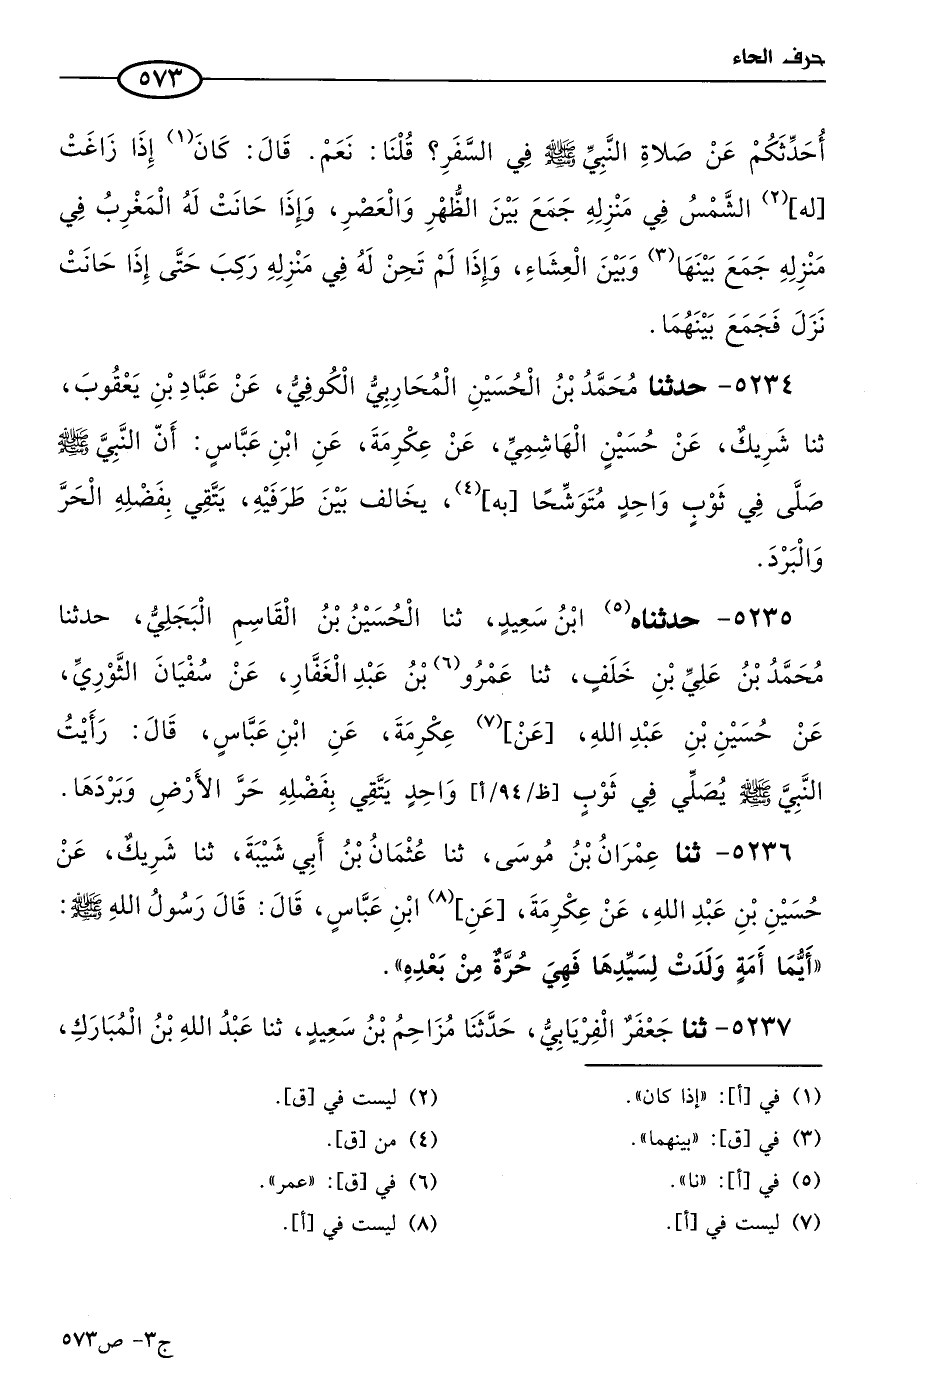 حرف الحاء
٥٧٣
أُحَدِّثَكُمْ عَنْ صَلاةِ النَّبِيِّ ﷺ فِي السَّفَرِ؟ قُلْنَا: نَعَمْ. قَالَ: كَانَ(١) إِذَا زَاغَتْ
[له](٢) الشَّمْسُ فِي مَنْزِلِهِ جَمَعَ بَيْنَ الظُّهْرِ وَالْعَصْرِ، وَإِذَا حَانَتْ لَهُ الْمَغْرِبُ فِي
مَنْزِلِهِ جَمَعَ بَيْنَهَا(٣) وَبَيْنَ الْعِشَاءِ، وَإِذَا لَمْ تَحِنْ لَهُ فِي مَنْزِلِهِ رَكِبَ حَتَّى إِذَا حَانَتْ
نَزَلَ فَجَمَعَ بَيْنَهُمَا.
٥٢٣٤- حدثنا مُحَمَّدُ بْنُ الْحُسَيْنِ الْمُحَارِبِيُّ الْكُوفِيُّ، عَنْ عَبَّادِ بْنِ يَعْقُوبَ،
ثنا شَرِيكٌ، عَنْ حُسَيْنٍ الْهَاشِمِيِّ، عَنْ عِكْرِمَةَ، عَنِ ابْنِ عَبَّاسٍ: أَنَّ النَّبِيَّ ﷺ
صَلَّى فِي ثَوْبٍ وَاحِدٍ مُتَوَشِّحًا [به](٤)، يخالف بَيْنَ طَرَفَيْهِ، يَتَّقِي بِفَضْلِهِ الْحَرَّ
وَالْبَرْدَ.
٥٢٣٥- حدثناه(٥) ابْنُ سَعِيدٍ، ثنا الْحُسَيْنُ بْنُ الْقَاسِمِ الْبَجَلِيُّ، حدثنا
مُحَمَّدُ بْنُ عَلِيِّ بْنِ خَلَفٍ، ثنا عَمْرُو(٦) بْنُ عَبْدِ الْغَفَّارِ، عَنْ سُفْيَانَ الثَّوْرِيِّ،
عَنْ حُسَيْنِ بْنِ عَبْدِ اللهِ، [عَنْ](٧) عِكْرِمَةَ، عَنِ ابْنِ عَبَّاسٍ، قَالَ: رَأَيْتُ
النَّبِيَّ ﷺ يُصَلِّي فِي ثَوْبٍ [ظ/٩٤/أ] وَاحِدٍ يَتَّقِي بِفَضْلِهِ حَرَّ الأَرْضِ وَبَرْدَهَا.
٥٢٣٦- ثنا عِمْرَانُ بْنُ مُوسَى، ثنا عُثْمَانُ بْنُ أَبِي شَيْبَةَ، ثنا شَرِيكٌ، عَنْ
حُسَيْنِ بْنِ عَبْدِ اللهِ، عَنْ عِكْرِمَةَ، [عَنِ](٨) ابْنِ عَبَّاسٍ، قَالَ: قَالَ رَسُولُ اللهِ ﷺ:
«أَيُّمَا أَمَةٍ وَلَدَتْ لِسَيِّدِهَا فَهِيَ حُرَّةٌ مِنْ بَعْدِهِ».
٥٢٣٧- ثنا جَعْفَرٌ الْفِرْيَابِيُّ، حَدَّثَنَا مُزَاحِمُ بْنُ سَعِيدٍ، ثنا عَبْدُ اللهِ بْنُ الْمُبَارَكِ،
(١) في [أ]: «إذا كان». (٢) ليست في [ق].
(٣) في [ق]: «بينهما». (٤) من [ق].
(٥) في [أ]: «نا». (٦) في [ق]: «عمر».
(٧) ليست في [أ]. (٨) ليست في [أ].
ج٣- ص٥٧٣